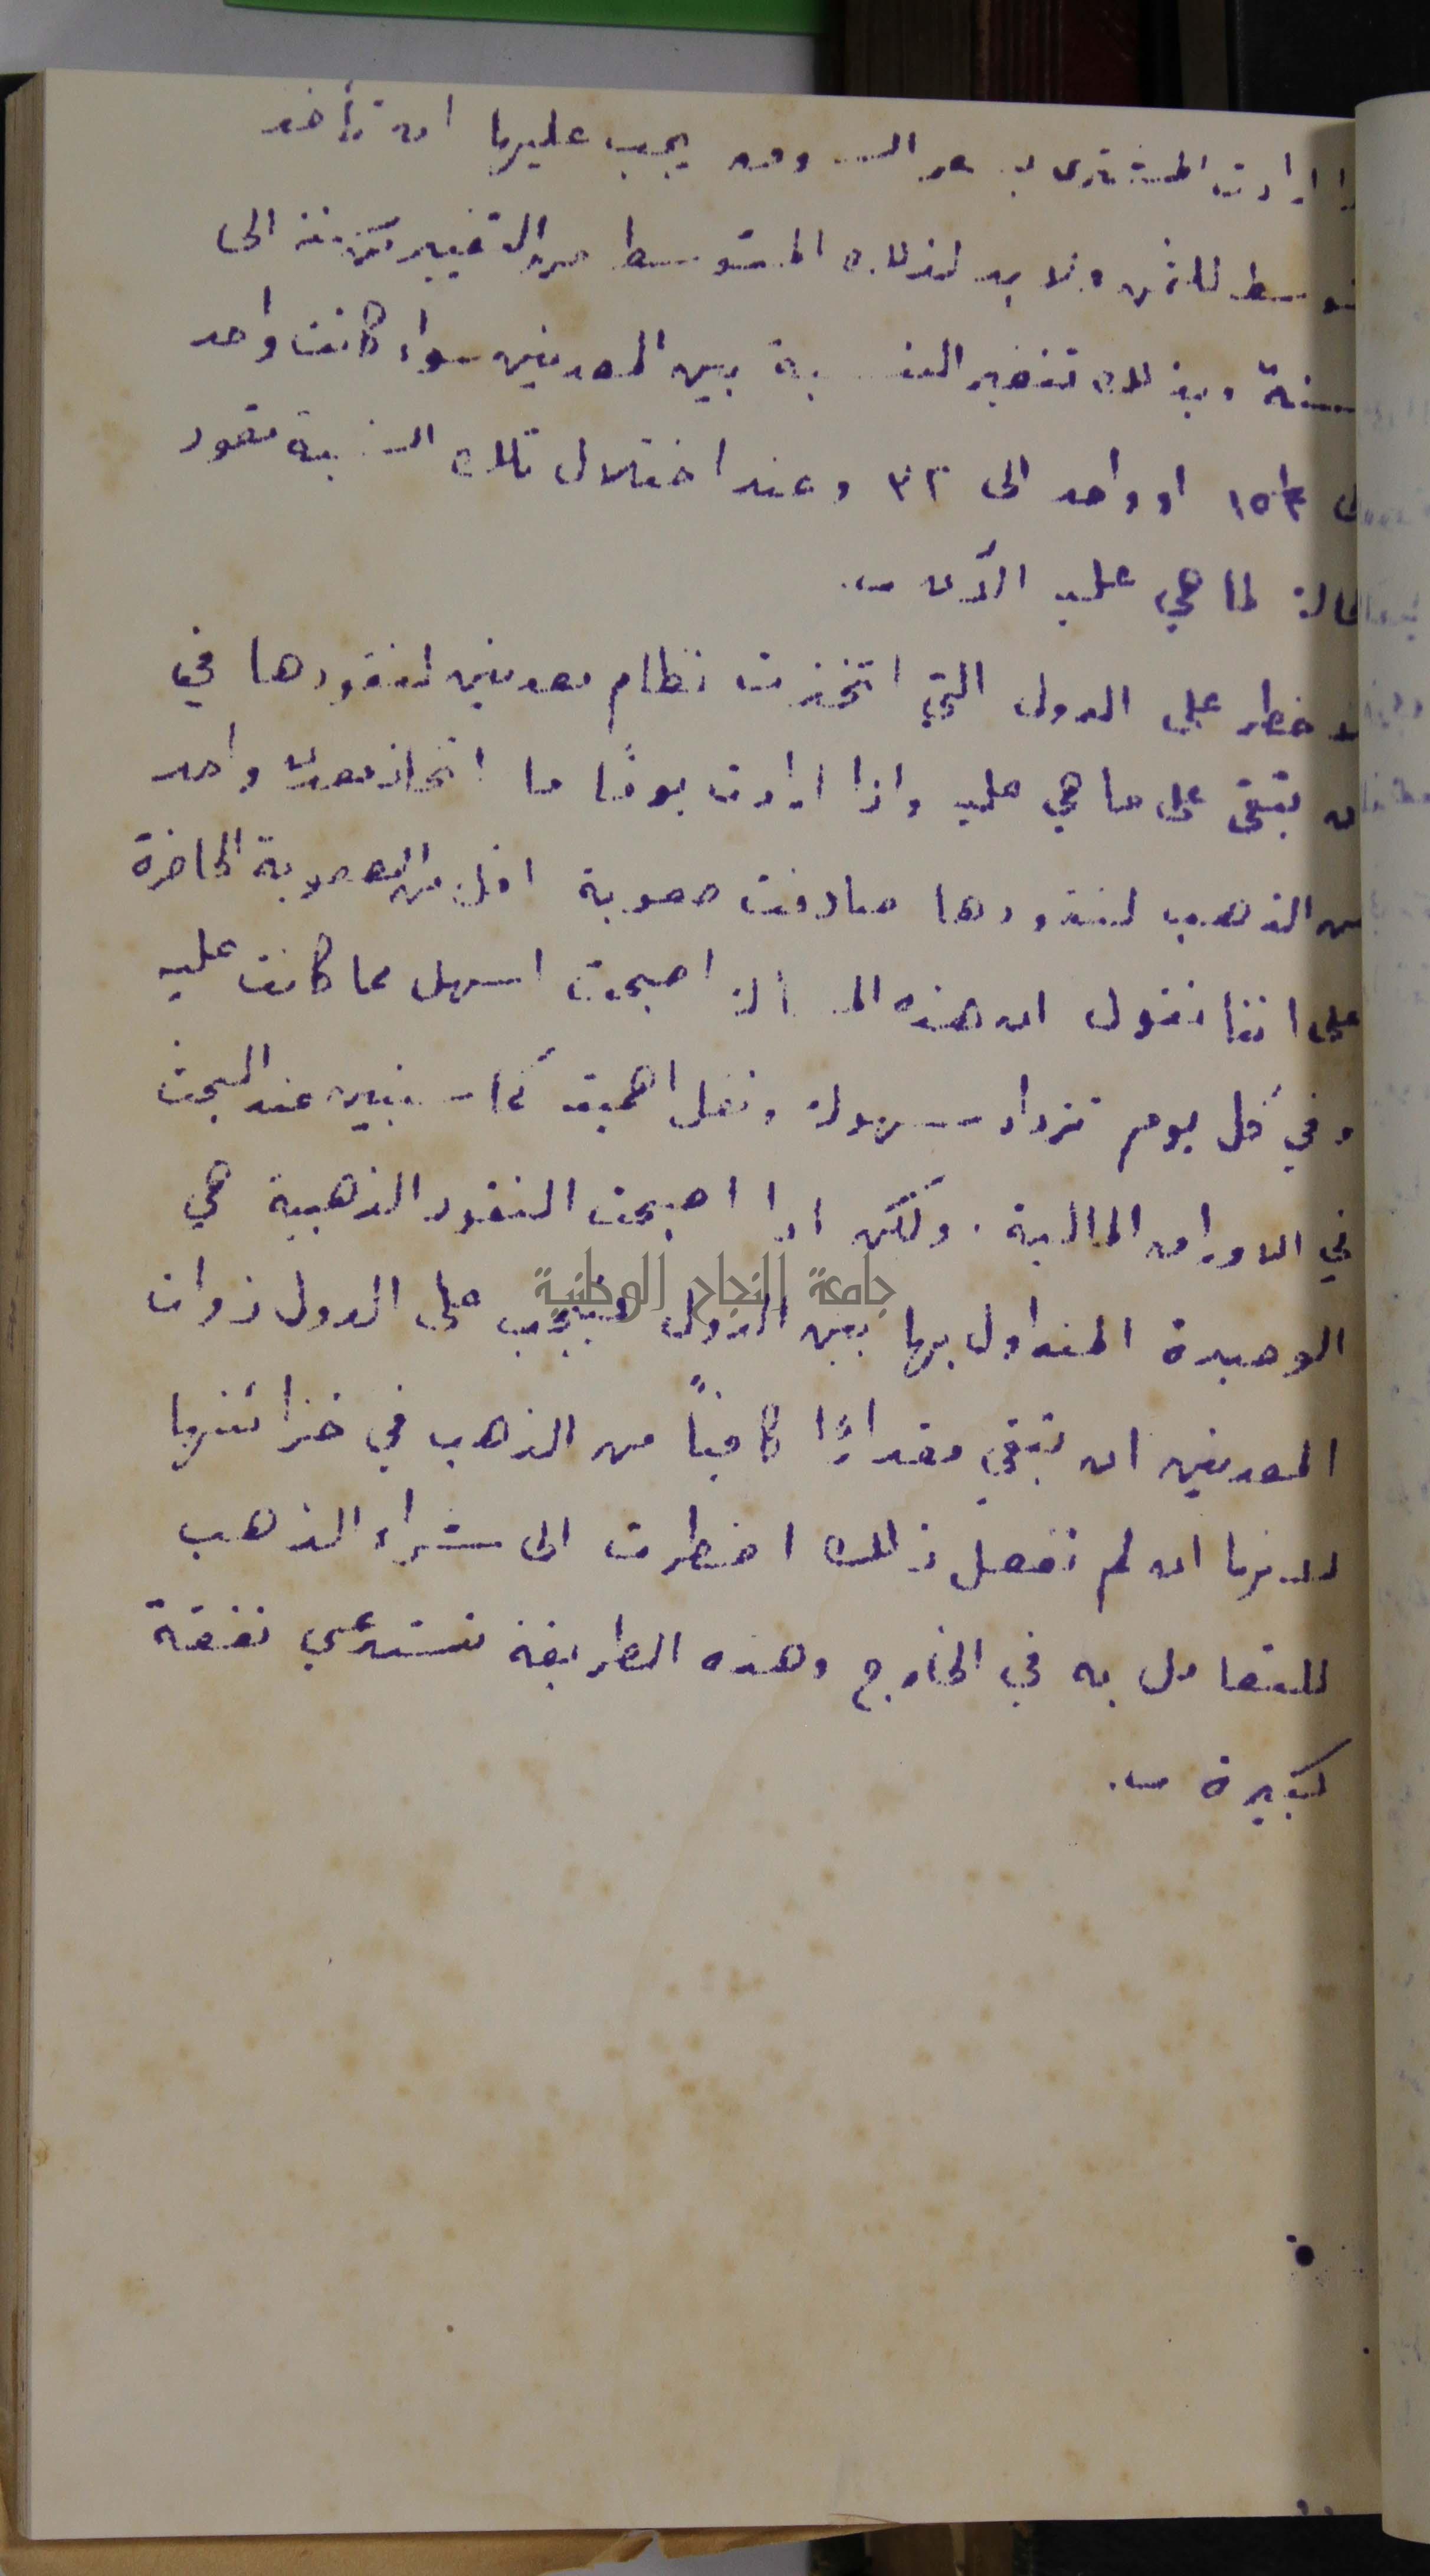 ارادت المشترى بسعر السوق يجب عليها ان تأخذ
متوسط للثمن ولا بد لذلك المتوسط من التغيير من سنة الى
سنة وبذلك تتغير النسبة بين المعدنين سواء كانت واحد
الى ١٥ او واحد الى ٣٢ وعند اختلال تلك النسبة تعود
الحالة لما هي عليه الآن .
خطر على الدول التي اتخذت نظام معدنين لنقودها في
ان تبقى على ما هي عليه واذا ارادت يومًا ما اتخاذ معدن واحد
من الذهب لنقودها صادفت صعوبة اقل من الصعوبة الحاضرة
على اننا نقول ان هذه المسألة اصبحت اسهل مما كانت عليه
وفي كل يوم تزداد سهولة وتقل اهمية كما سنبين عند البحث
في الاوراق المالية . ولكن اذا اصبحت النقود الذهبية هي
الوحيدة المتداول بها بين الدول فيجب على الدول ذوات
المعدنين ان تبقي مقدارًا كافيًا من الذهب في خزائنها
لانها ان لم تفعل ذلك اضطرت الى شراء الذهب
للتعامل به في الخارج وهذه الطريقة تستدعي نفقة
كبيرة .
جامعة النجاح الوطنية